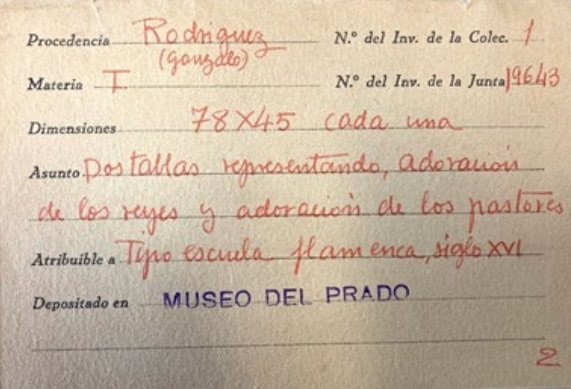 Procedencia Rodriguez N.º del Inv. de la Colec. 1
(gonzalo)
Materia I. N.º del Inv. de la Junta 19643
Dimensiones 78X45 cada una
Asunto Dos tablas representando, adoración
de los reyes y adoración de los pastores
Atribuible a Tipo escuela flamenca, siglo XVI
Depositado en MUSEO DEL PRADO
2